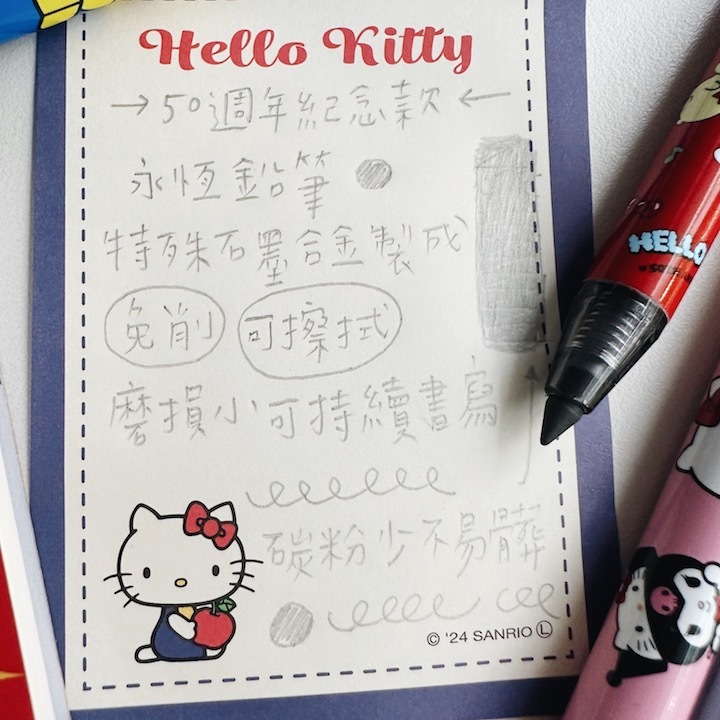 Hello Kitty
→50週年紀念款←
永恆鉛筆
特殊石墨合金製成
免削 可擦拭
磨損小可持續書寫
碳粉少不易髒
© '24 SANRIO Ⓛ
HELLO